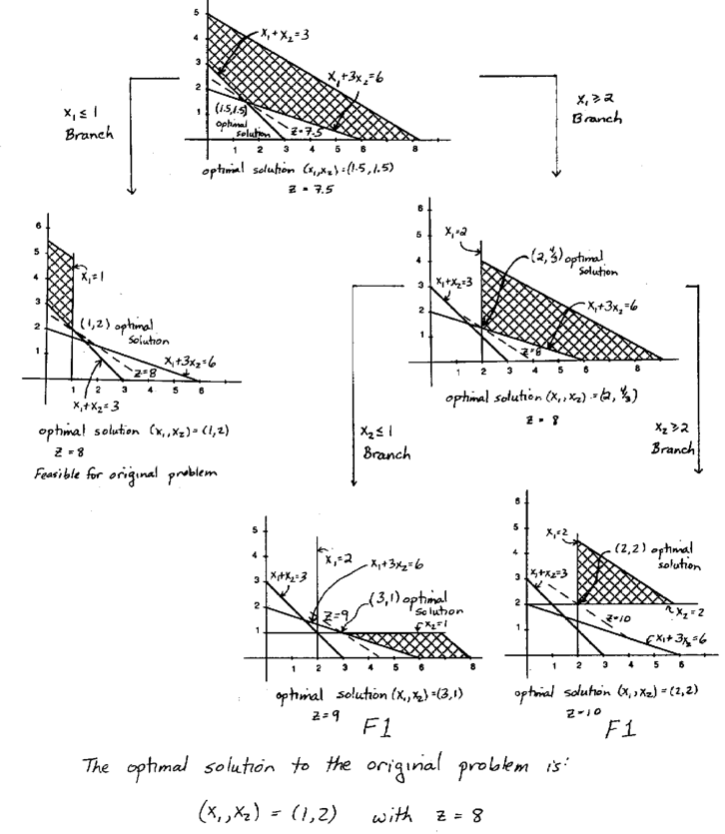 5
4
3
2
1
x₁+x₂=3
x₁+3x₂=6
(1.5,1.5)
optimal
solution
z=7.5
1 2 3 4 5 6 8
optimal solution (x₁,x₂)=(1.5,1.5)
z = 7.5
x₁ ≤ 1
Branch
x₁ ≥ 2
Branch
6
5
4
3
2
1
x₁=1
(1,2) optimal
solution
x₁+3x₂=6
z=8
1 2 3 4 5 6
x₁+x₂=3
optimal solution (x₁,x₂)=(1,2)
z = 8
Feasible for original problem
6
5
4
3
2
1
x₁=2
(2,4/3) optimal
solution
x₁+x₂=3
x₁+3x₂=6
z=8
1 2 3 4 5 6 8
optimal solution (x₁,x₂)=(2, 4/3)
z = 8
x₂ ≤ 1
Branch
x₂ ≥ 2
Branch
5
4
3
2
1
x₁=2
x₁+3x₂=6
x₁+x₂=3
(3,1) optimal
solution
z=9
x₂=1
1 2 3 4 5 6 8
optimal solution (x₁,x₂)=(3,1)
z=9
F1
6
5
4
3
2
1
x₁=2
(2,2) optimal
solution
x₁+x₂=3
x₂=2
z=10
x₁+3x₂=6
1 2 3 4 5 6
optimal solution (x₁,x₂)=(2,2)
z=10
F1
The optimal solution to the original problem is:
(x₁,x₂) = (1,2) with z = 8